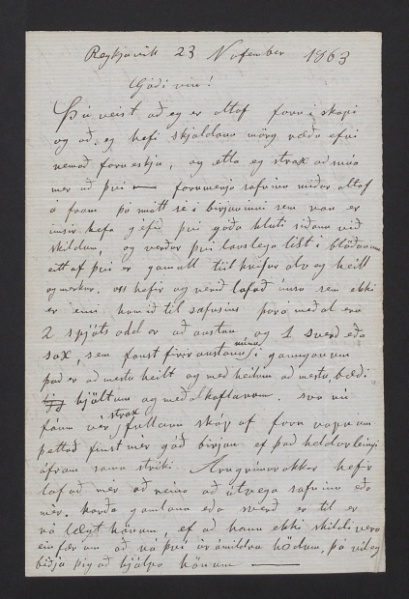 Reykjavik 23 Nofember 1863
Góði vin!
Þú veist að eg er altaf forn í skapi
og að eg hefi skjaldan mörg ræðu efni
nema forneskju, og ætla eg strax að snúa
mer að því — forngripa safninu miðar altaf
á fram þó mátt sé í birjuninni sem von er
imsir hafa gefið því góða hluti síðan við
skildum, og verður því lauslega líst í blöðunum
eitt af því er gamalt og heilt
og merkur. oss hefir og verið lofað imsu sem ekki
er enn komið til safnsins þará meðal eru
2 spjóts oddar að austan og 1 sverð eða
sax, sem fanst firir austan núna í
það er að mestu heilt og með heilum að mestu bæði
hjöltum og meðalkaflanum, svo nú
fáum við strax fullann skáp af forn vopnum
þettað finst mér góð birjun ef það heldur leingi
áfram sama striki. Arngrímur okkar hefir
lofað mér að reina að útvega safninu eða
mér, korða gamlann eða sverð er til er
þá lægt hönum, ef að hann ekki skildi vera
einfær um að ná því úr höndum, þá vil eg
biðja þig að hjálpa hönum —